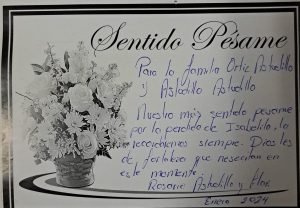 Sentido Pésame
Para la familia Ortiz Astudillo
y Astudillo Astudillo
Nuestro más sentido pesame
por la perdida de Isabelita, la
recordaremos siempre. Dios les
de fortaleza que necesitan en
este momento
Rosario Astudillo y Flor
Enero 2024